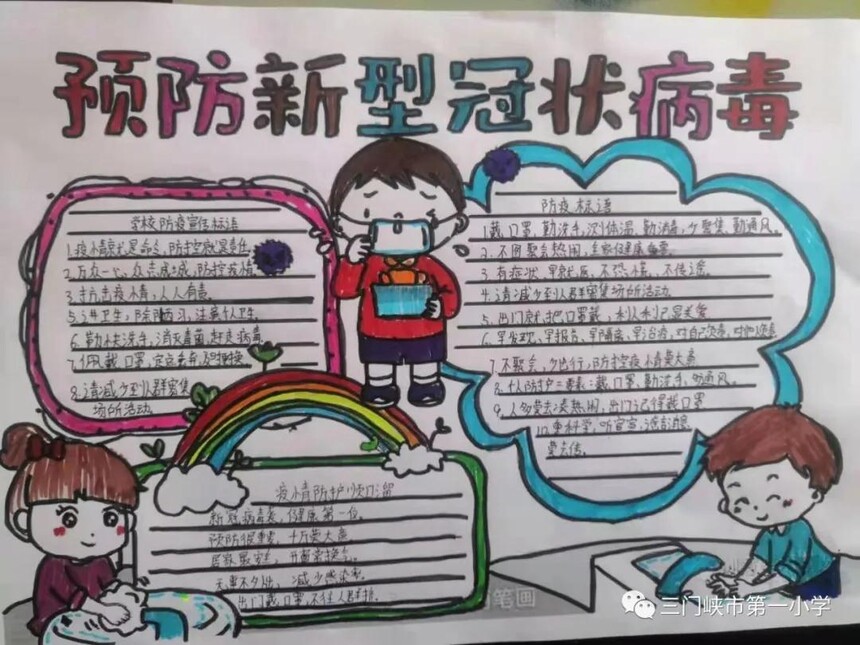 预防新型冠状病毒
学校防疫宣传标语
1.疫情就是命令,防控就是责任
2.万众一心,众志成城,防控疫情
3.抗击疫情,人人有责。
5.讲卫生,除陋习,注意个人卫生。
6.勤快洗手,消灭毒菌,赶走病毒
7.佩戴口罩,定点弃弃,及时换。
8.请减少到人群密集
场所活动。
防疫标语
1.戴口罩,勤洗手,测体温,勤消毒,少聚集,勤通风。
2.不图聚会热闹,全家健康
3.有症状,早就医,不恐慌,不传谣。
4.请减少到人群密集场所活动。
5.出门就把口罩戴,利人利己
6.早发现,早报告,早隔离,早治疗,对自己负责,对他人负责
7.不聚会,少出行,防控疫情莫大意
8.个人防护三要素:戴口罩,勤洗手,多通风。
9.人多莫去凑热闹,出门记得戴口罩
10.重科学,听官宣,
莫去传。
疫情防护顺口溜
新冠病毒袭,健康第一位。
预防很重要,千万莫大意
居家最安全,开窗常换气。
无事不外出,减少感染率。
出门戴口罩,不往人群挤。
笔画
三门峡市第一小学